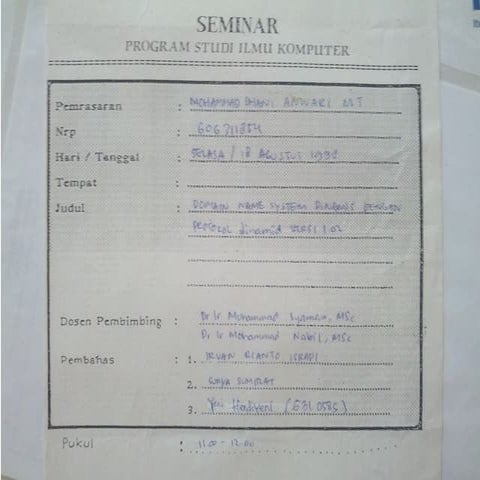 SEMINAR
PROGRAM STUDI ILMU KOMPUTER
Pemrasaran : MOHAMMAD ANWARI MT
Nrp :
Hari / Tanggal : SELASA / 18 AGUSTUS 1998
Tempat :
Judul : DOMAIN NAME SYSTEM DINAMIS DENGAN
PROTOCOL dinamid VERSI 1.02
Dosen Pembimbing : Dr Ir Mohammad MSc
Dr Ir Mohammad Nabil, MSc
Pembahas : 1. IRVAN RIANTO ISBADI
2. SURYA SUMIRAT
3. Yeni Herdiyeni (631 0585)
Pukul : 11.00 - 12.00